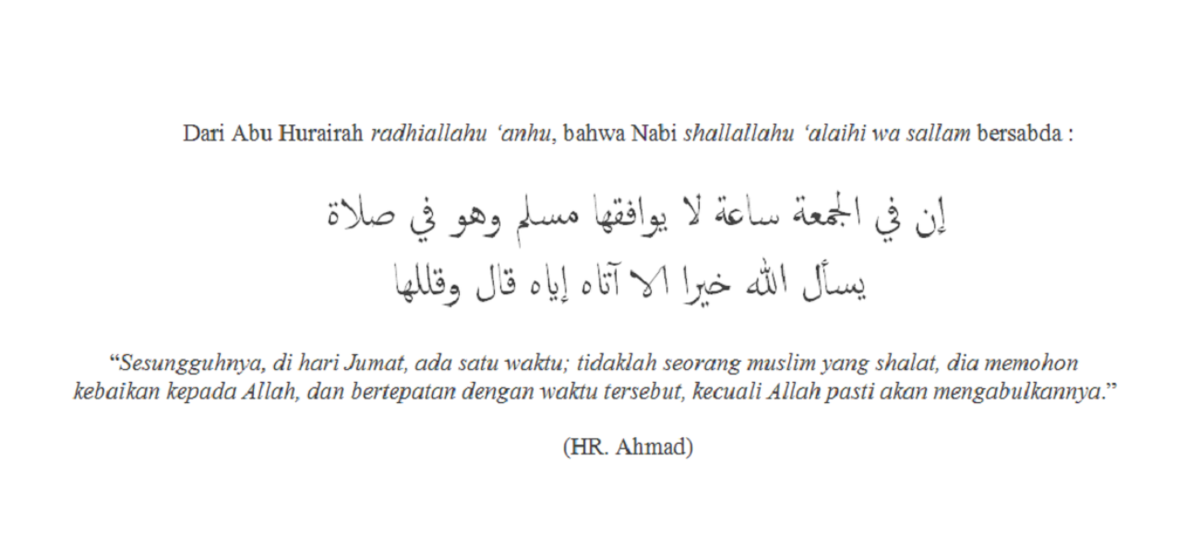 Dari Abu Hurairah radhiallahu ‘anhu, bahwa Nabi shallallahu ‘alaihi wa sallam bersabda :
إن في الجمعة ساعة لا يوافقها مسلم وهو في صلاة
يسأل الله خيرا الا آتاه إياه قال وقللها
“Sesungguhnya, di hari Jumat, ada satu waktu; tidaklah seorang muslim yang shalat, dia memohon
kebaikan kepada Allah, dan bertepatan dengan waktu tersebut, kecuali Allah pasti akan mengabulkannya.”
(HR. Ahmad)